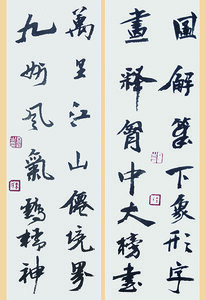 圖解筆下象形字
畫釋胷中大榜書
萬里江山僊境界
九州風氣鶴精神